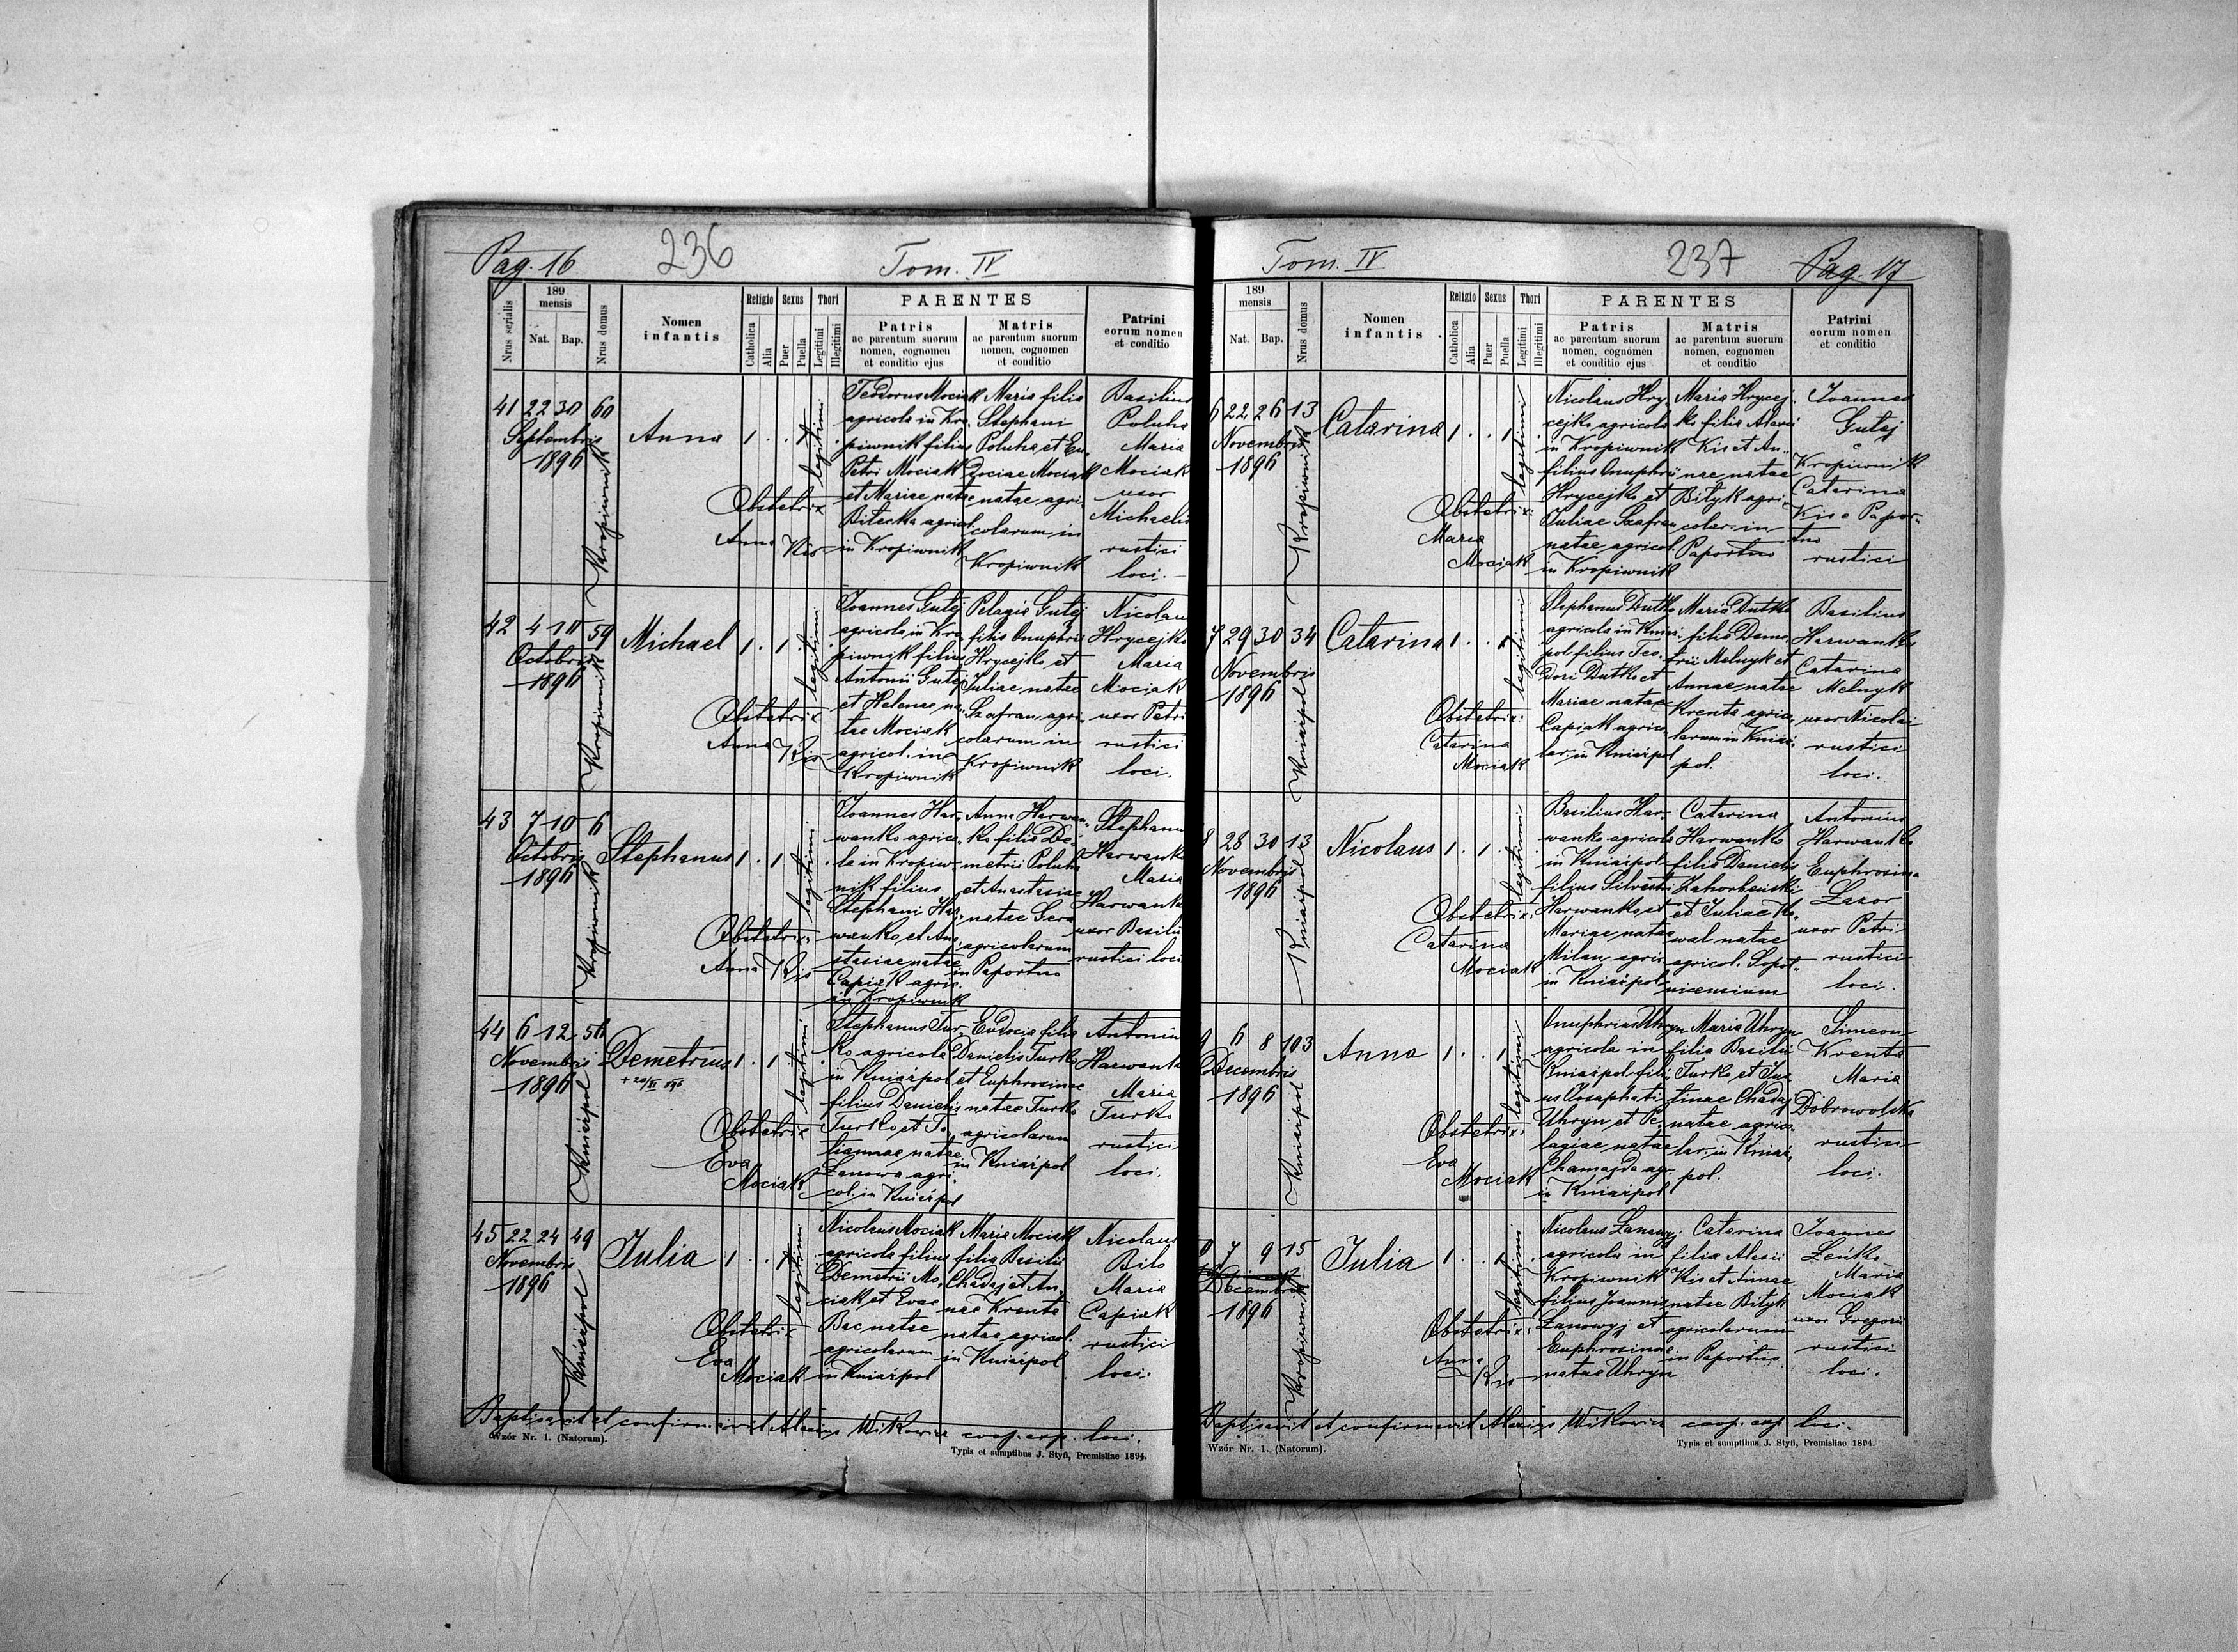 Pag. 16
236
Tom. IV
Nrus serialis
189
mensis
Nat.
Bap.
Nrus domus
Nomen
infantis
Religio
Catholica
Alia
Sexus
Puer
Puella
Thori
Legitimi
Illegitimi
PARENTES
Patris
ac parentum suorum
nomen, cognomen
et conditio ejus
Matris
ac parentum suorum
nomen, cognomen
et conditio
Patrini
eorum nomen
et conditio
41 22 30 60
Septembris
1896
Kropiwnik
Anna
1 . . 1
legitimi
Obstetrix
Anna Kis
Teodorus Mociak
agricola in Kro-
piwnik filius
Petri Mociak
et Mariae natae
Bilecka agricol.
in Kropiwnik
Maria filia
Stephani
Poluha et Eu-
dociae Mociak
natae agri-
colarum in
Kropiwnik
Basilius
Poluha
Maria
Mociak
uxor
Michaelis
rustici
loci.
42 4 10 59
Octobris
1896
Kropiwnik
Michael
1 . 1 .
legitimi
Obstetrix
Anna Kis
Joannes Gutej
agricola in Kro-
piwnik filius
Antonii Gutej
et Helenae na-
tae Mociak
agricol. in
Kropiwnik
Pelagia Gutej
filia Onuphrii
Hrycejko et
Juliae natae
Szafran agri-
colarum in
Kropiwnik
Nicolaus
Hrycejko
Maria
Mociak
uxor Petri
rustici
loci.
43 7 10 6
Octobris
1896
Kropiwnik
Stephanus
1 . 1 .
legitimi
Obstetrix:
Anna Kis
Joannes Har-
wanko agrico-
la in Kropiw-
nik filius
Stephani Har-
wanko et Ana-
stasiae natae
Capiak agric.
in Kropiwnik
Anna Harwan-
ko filia De-
metrii Poluha
et Anastasiae
natae Gera
agricolarum
in Paportno
Stephanus
Harwanko
Maria
Harwanko
uxor Basilii
rustici loci
44 6 12 56
Novembris
1896
Kniaźpol
Demetrius
+ 20/XI 896
1 . 1 .
legitimi
Obstetrix
Eva
Mociak
Stephanus Tur-
ko agricola
in Kniaźpol
filius Danielis
Turko et Ta-
tiannae natae
Łanowa agri-
col. in Kniaźpol
Eudocia filia
Danielis Turko
et Euphrosinae
natae Turko
agricolarum
in Kniaźpol
Antonius
Harwanko
Maria
Turko
rustici
loci.
45 22 24 49
Novembris
1896
Kniaźpol
Julia
1 . . 1
legitimi
Obstetrix
Eva
Mociak
Nicolaus Mociak
agricola filius
Demetrii Mo-
ciak et Evae
Bac natae
agricolarum
in Kniaźpol
Maria Mociak
filia Basilii
Chadaj et An-
nae Krenta
natae agricol.
in Kniaźpol
Nicolaus
Bilo
Maria
Capiak
rustici
loci.
Baptisavit et confirmavit Alexius Witkowicz coop. exp. loci.
Wzór Nr. 1. (Natorum).
Typis et sumptibus J. Styfi, Premisliae 1894.
Tom. IV
237
Pag. 17
189
mensis
Nat.
Bap.
Nrus domus
Nomen
infantis
Religio
Catholica
Alia
Sexus
Puer
Puella
Thori
Legitimi
Illegitimi
PARENTES
Patris
ac parentum suorum
nomen, cognomen
et conditio ejus
Matris
ac parentum suorum
nomen, cognomen
et conditio
Patrini
eorum nomen
et conditio
6 22 26 13
Novembris
1896
Kropiwnik
Catarina
1 . . 1
legitimi
Obstetrix:
Maria
Mociak
Nicolaus Hry-
cejko agricola
in Kropiwnik
filius Onuphrii
Hrycejko et
Juliae Szafran
natae agricol.
in Kropiwnik
Maria Hrycej-
ko filia Alexii
Kis et An-
nae natae
Bityk agri-
colar. in
Paportno
Joannes
Gutej
e
Kropiwnik
Catarina
Kis e Papor-
tno
rustici
7 29 30 34
Novembris
1896
Kniaźpol
Catarina
1 . . 1
legitimi
Obstetrix:
Catarina
Mociak
Stephanus Dutko
agricola in Kniaź-
pol filius Teo-
dori Dutko et
Mariae natae
Capiak agrico-
lar. in Kniaźpol
Maria Dutko
filia Deme-
trii Melnyk et
Annae natae
Krenta agrico-
larum in Kniaź-
pol.
Basilius
Harwanko
Catarina
Melnyk
uxor Nicolai
rustici
loci.
8 28 30 13
Novembris
1896
Kniaźpol
Nicolaus
1 . 1 .
legitimi
Obstetrix:
Catarina
Mociak
Basilius Har-
wanko agricola
in Kniaźpol
filius Silvestri
Harwanko et
Mariae natae
Milan agric.
in Kniaźpol
Catarina
Harwanko
filia Danielis
Zahorbeński
et Juliae Ko-
wal natae
agricol. Sopot-
nicensium
Antonius
Harwanko
Euphrosina
Łazor
uxor Petri
rustici
loci.
9 6 8 103
Decembris
1896
Kniaźpol
Anna
1 . . 1
legitimi
Obstetrix:
Eva
Mociak
Onuphrius Uhryn
agricola in
Kniaźpol fili-
us Josaphati
Uhryn et Pe-
lagiae natae
Chamajda agr.
in Kniaźpol
Maria Uhryn
filia Basilii
Turko et Jus-
tinae Chadaj
natae agrico-
lar. in Kniaź-
pol.
Simeon
Krenta
Maria
Dobrowolska
rustici
loci.
0 7 9 15
Decembris
1896
Kropiwnik
Julia
1 . . 1
legitimi
Obstetrix:
Anna
Kis
Nicolaus Łanowyj
agricola in
Kropiwnik
filius Joannis
Łanowyj et
Euphrosinae
natae Uhryn
Catarina
filia Alexii
Kis et Annae
natae Bityk
agricolarum
in Paportno
Joannes
Łenko
Maria
Mociak
uxor Gregorii
rustici
loci.
Baptisavit et confirmavit Alexius Witkowicz coop. exp. loci.
Wzór Nr. 1. (Natorum).
Typis et sumptibus J. Styfi, Premisliae 1894.